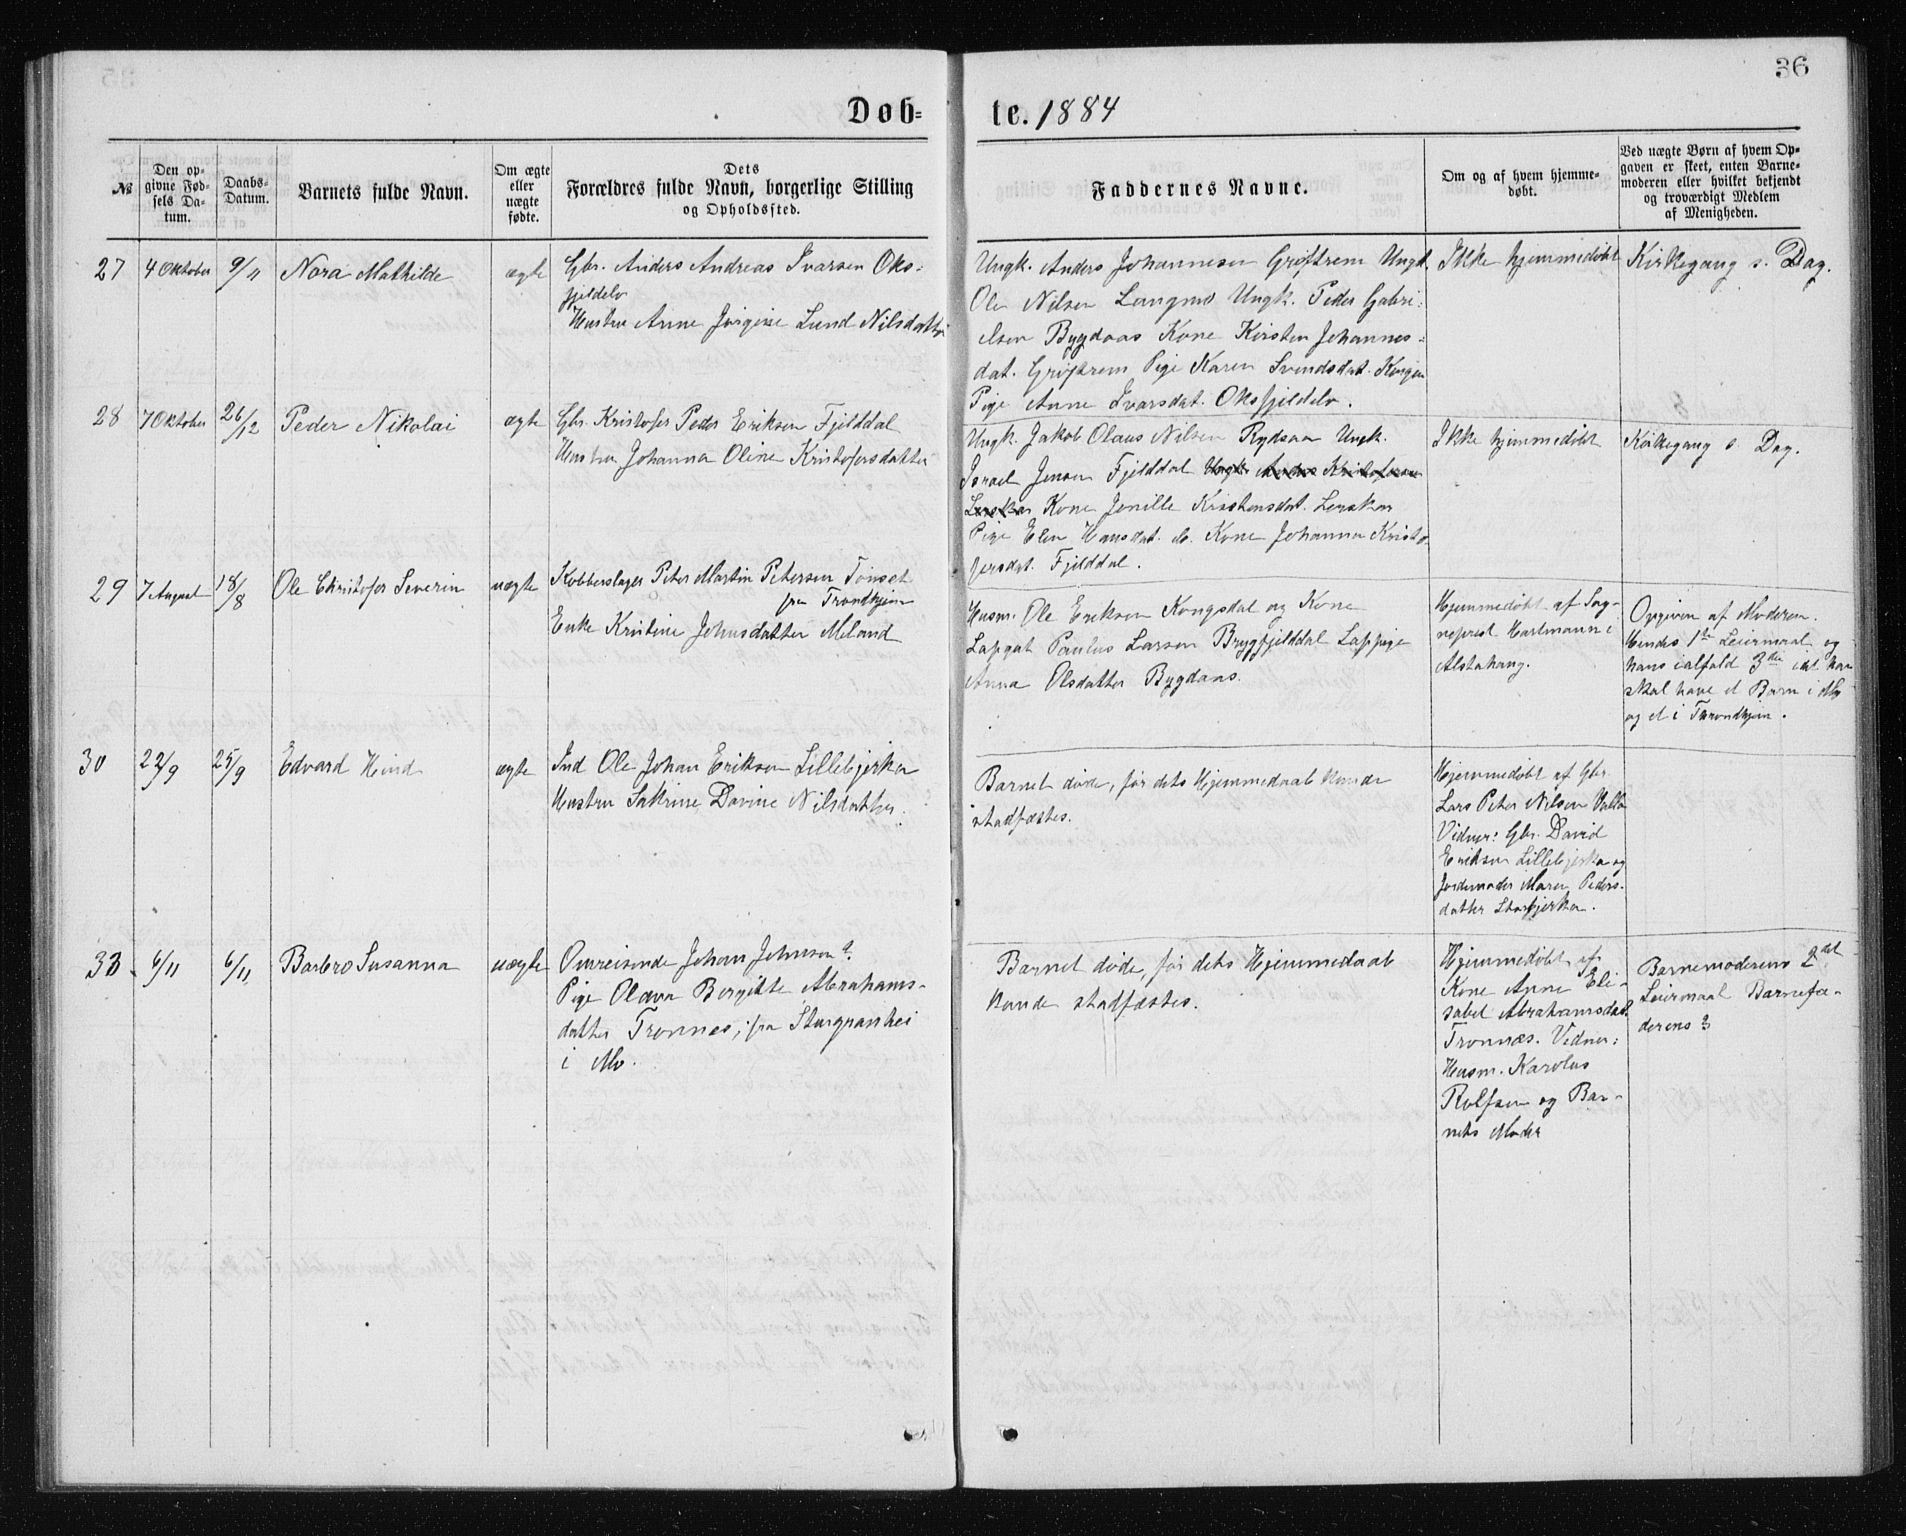 36
Døb=
te. 1884
№
Den op-
givne Fød-
sels Da-
tum.
Daabs-
Datum.
Barnets fulde Navn.
Om ægte
eller
uægte
fødte.
Dets
Forældres fulde Navn, borgerlige Stilling
og Opholdssted.
Faddernes Navne.
Om og af hvem hjemme-
døbt.
Ved uægte Børn af hvem Op-
gaven er skeet, enten Barne-
moderen eller hvilket bekjendt
og troværdigt Medlem
af Menigheden.
27 4 Oktober 9/11 Nora Mathilde ægte Gbr. Anders Andreas Ivarsen Oks-
fjeldelv
Hustru Anne Jørgine Lund Nilsdatter
Ungk. Anders Johannesen Grøftrem Ungk.
Ole Nilsen Langmo Ungk. Peder Gabri-
elsen Bygdaas Kone Kirsten Johannes=
dat. Grøftrem Pige Karen Svendsdat.
Pige Anne Ivarsdat. Oksfjeldelv.
Ikke hjemmedøbt
Kirkegang s. Dag.
28 7 Oktober 26/12 Peder Nikolai ægte Gbr. Kristofer Peder Eriksen Fjelddal
Hustru Johanna Oline Kristofersdatter
Ungk. Jakob Olaus Nilsen Rydsaa Ungk.
Israel Jensen Fjelddal Ungk. Anders Kristofersen
Lerskar Kone Jenille Kristensdat. Lerskar
Pige Elen Hansdat. ib. Kone Johanna Kristo
fersdat. Fjelddal.
Ikke hjemmedøbt
Kirkegang s. Dag.
29 7 August 18/8 Ole Christofer Severin uægte Kobberslager Peter Martin Petersen Tønset
fra Trondhjem
Enke Kristine Johnsdatter Meland
Husm. Ole Eriksen Kongsdal og Kone
Lapgut Paulus Larsen Brygfjelddal Lappige
Anna Olsdatter Bygdaas.
Hjemmedøbt af Sog-
neprest Hartmann i
Alstahaug.
Opgiven af Moderen.
Hendes 1ste Leiermaal og
hans ialfald 3die idet han
skal have et Barn i Mo
og et i Throndhjem.
30 22/9 25/9 Edvard Hind ægte Ind Ole Johan Eriksen Lillebjerka
Hustru Satrine Davine Nilsdatter.
Barnet døde, før dets Hjemmedaab kunde
stadfæstes.
Hjemmedøbt af Gbr.
Lars Peter Nilsen Valla
Vidner: Gbr. David
Eriksen Lillebjerka og
Jordemoder Maren Peders-
datter Storbjerka.
33 6/11 6/11 Barbro Susanna uægte Omreisende Johan Johnsen?
Pige Olava Bergitte Abrahams-
datter Trønnes, fra
i Mo.
Barnet døde, før dets Hjemmedaab
kunde stadfæstes.
Hjemmedøbt af
Kone Anne Eli-
sabet Abrahamsdat.
Trønnæs. Vidner:
Husm. Karolus
Rolfsen og Bar-
nets Moder
Barnemoderens 2det
Leiermaal Barnefa-
derens ?